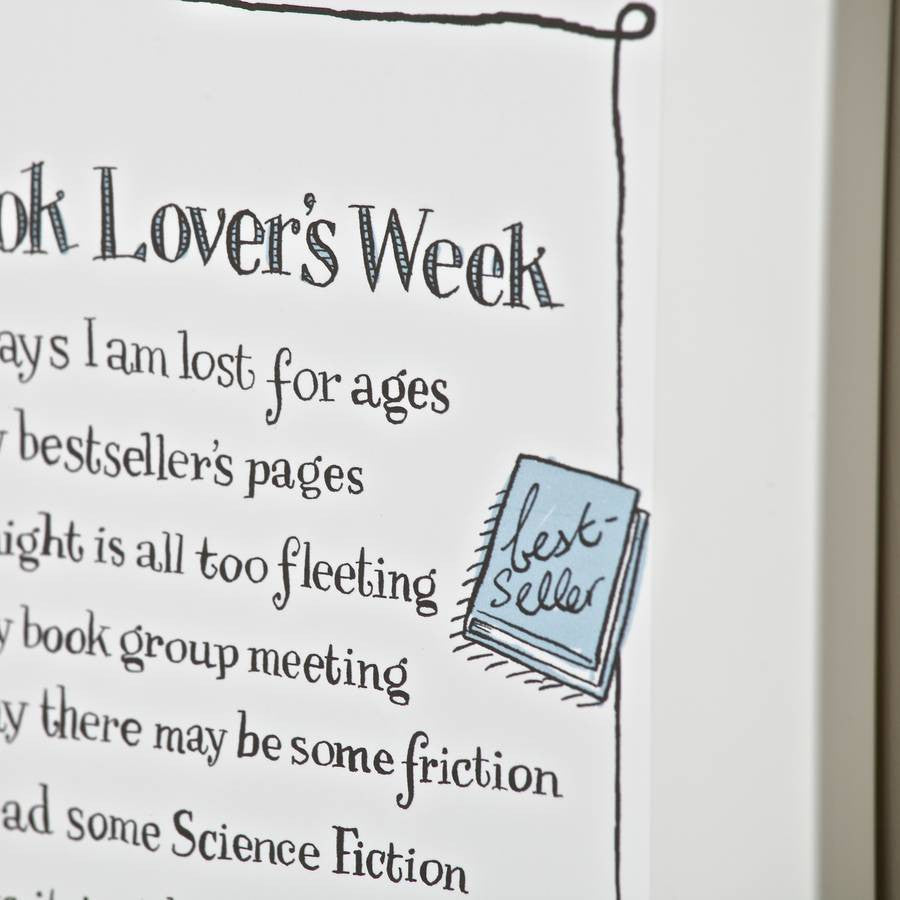 ok Lover's Week
ays I am lost for ages
y bestseller's pages
ight is all too fleeting
best-
seller
y book group meeting
y there may be some friction
ad some Science Fiction